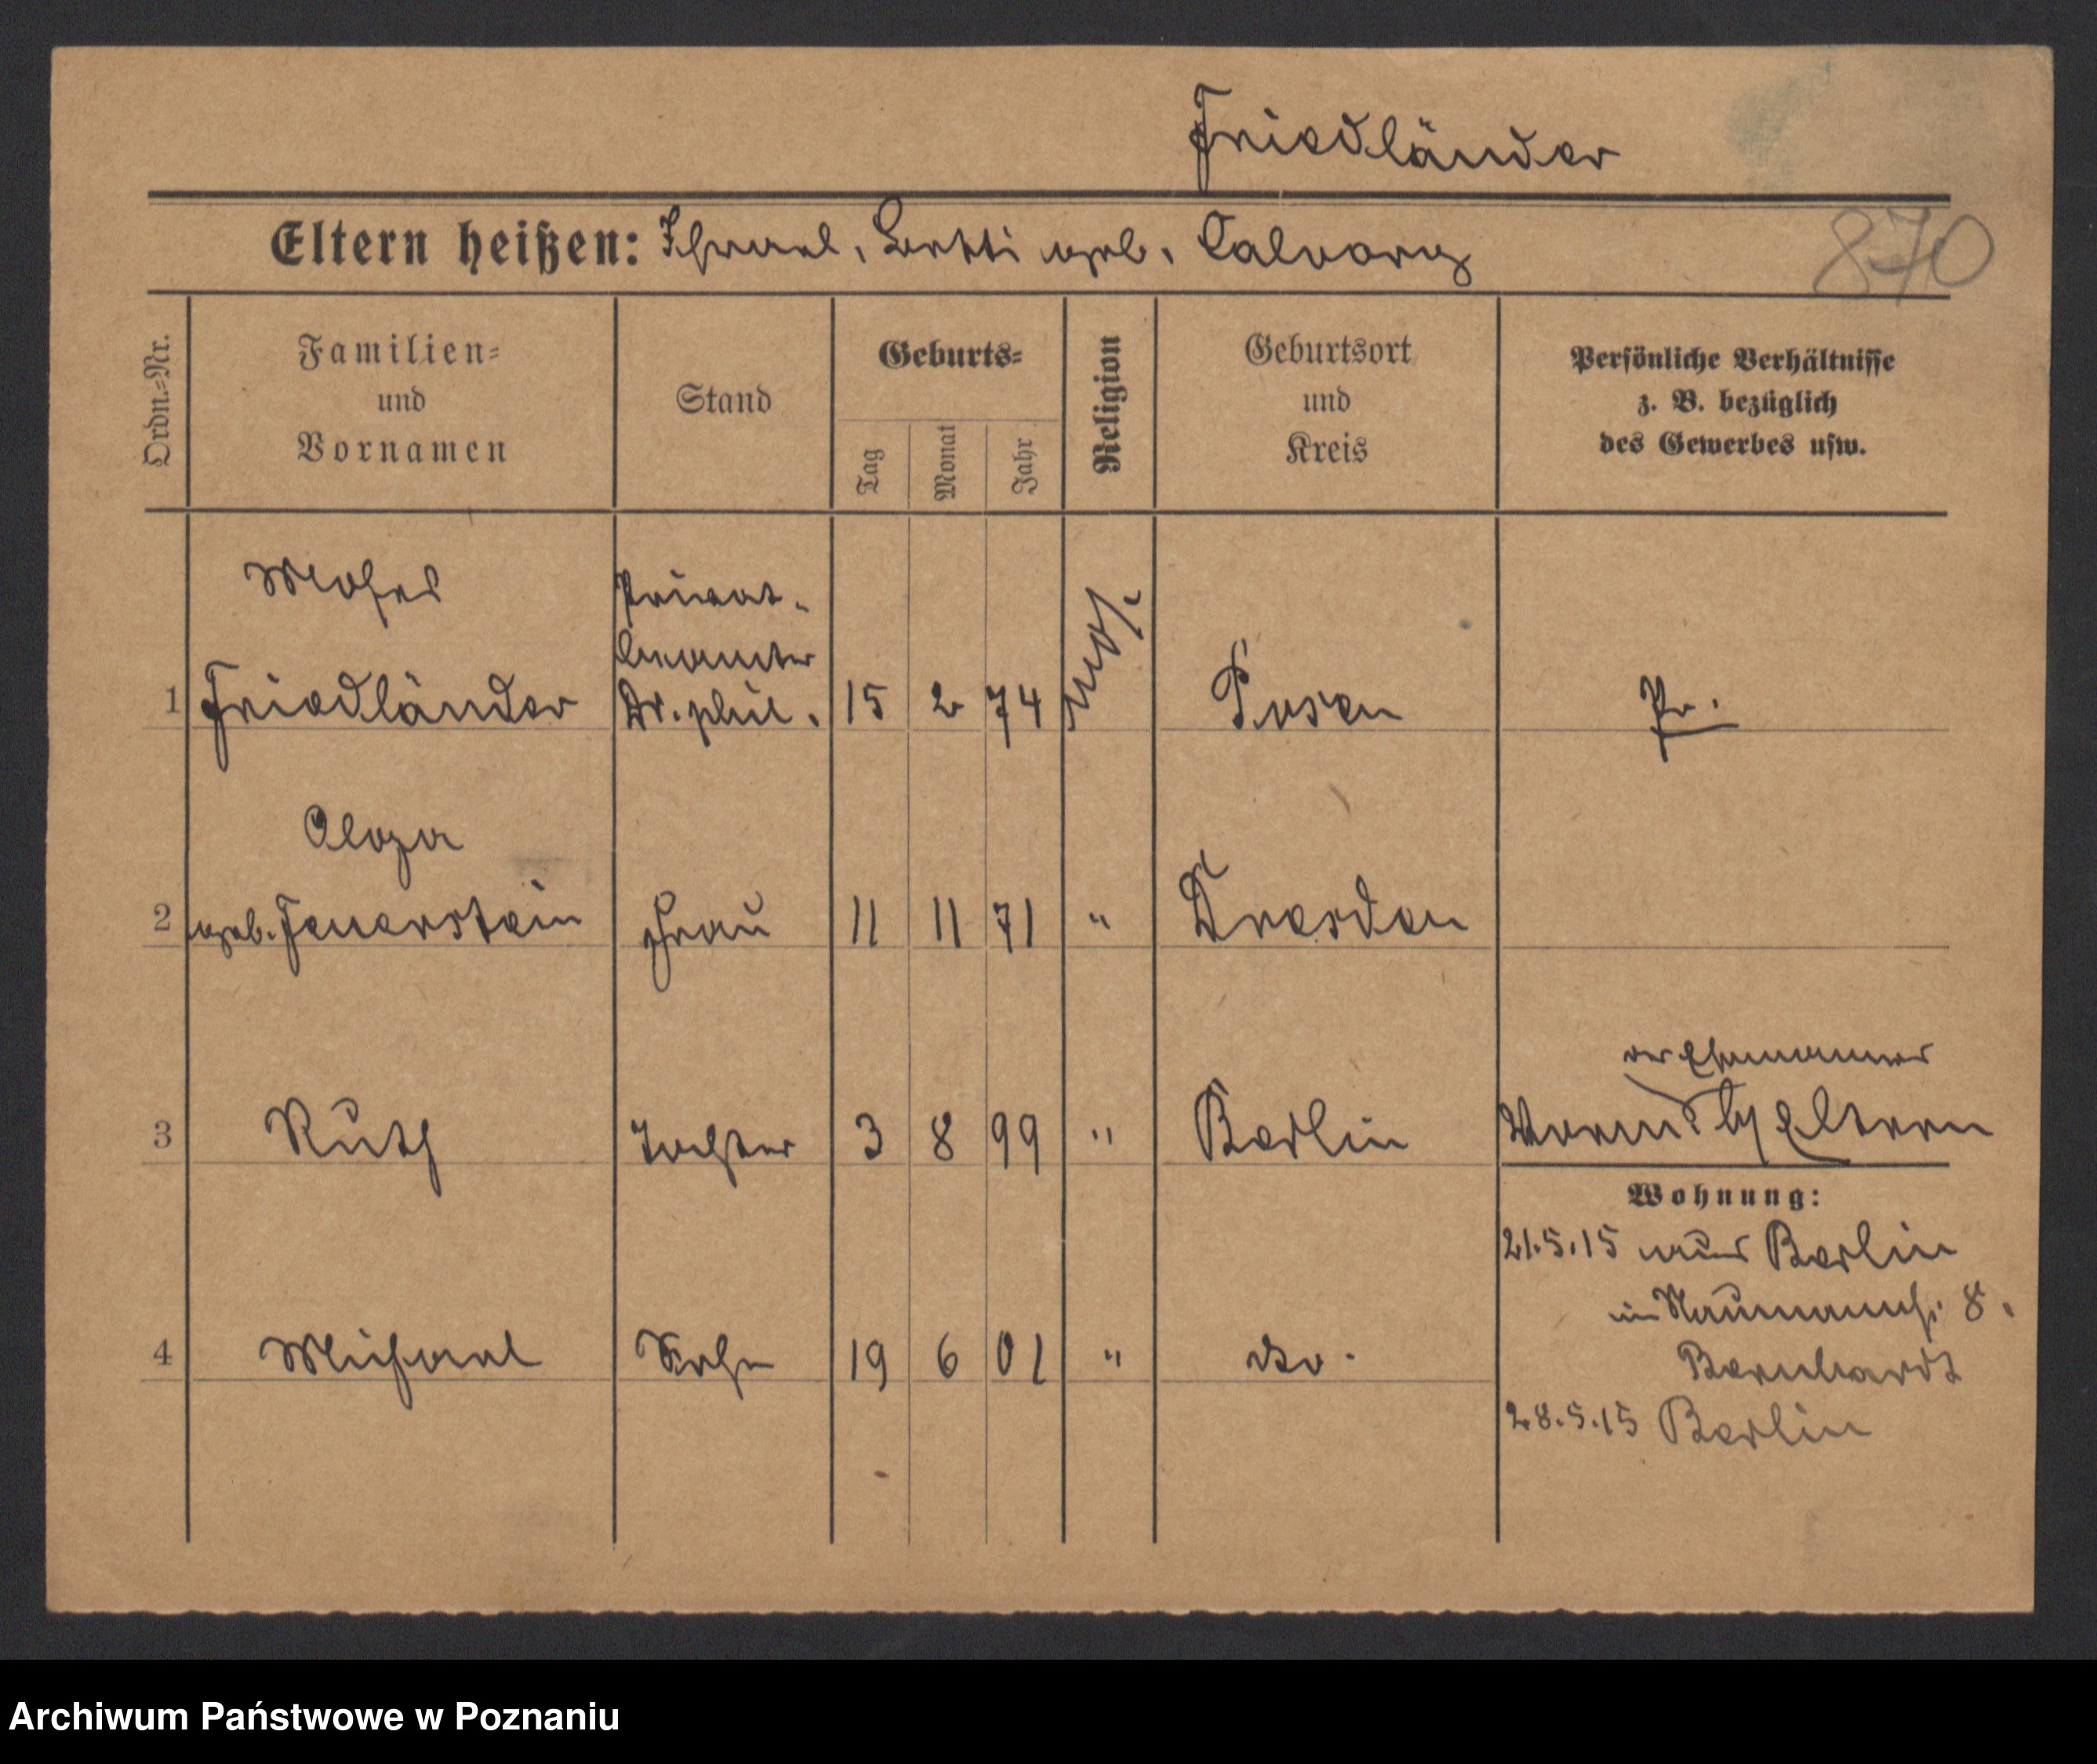 Friedländer
Eltern heißen: Israel, Berthi geb. Calvary
870
Ordn.-Nr.
Familien- und Vornamen
Stand
Geburts-
Tag
Monat
Jahr
Religion
Geburtsort und Kreis
Persönliche Verhältnisse z. B. bezüglich des Gewerbes usw.
Moses
Privat-
beamter
1 Friedländer Dr. phil. 15 2 74 Posen Pr.
Olga
2 geb. Feuerstein Frau 11 11 71 " Dresden
der Ehemannes
3 Ruth Tochter 3 8 99 " Berlin Eltern
Wohnung:
21.5.15 aus Berlin
in Naumannstr. 8.
4 Michael Sohn 19 6 01 " do.
Bernhardt
28.5.15 Berlin
Archiwum Państwowe w Poznaniu